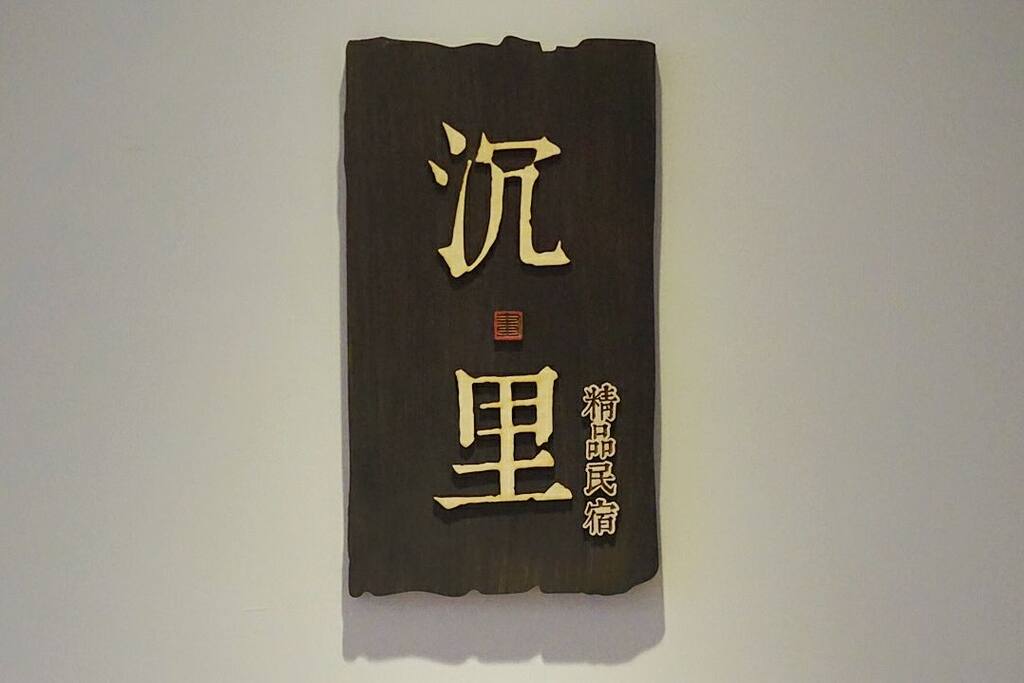 沉里
精品民宿